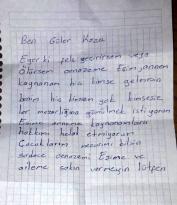 Ben Güler Keza
Eğer ki felç geçirirsem veya
Ölürsem cenazeme Eşim annem
kaynanam hiç kimse gelmesin
benim hiç kimsem yok kimsesiz
ler mezarlığına gömülmek istiyorum
Eşime anneme kaynanamlara
hakkımı helal etmiyorum
Çocuklarım mezarımı bilsin
sadece cenazemi Eşime ve
aileme sakın vermeyin lütfen